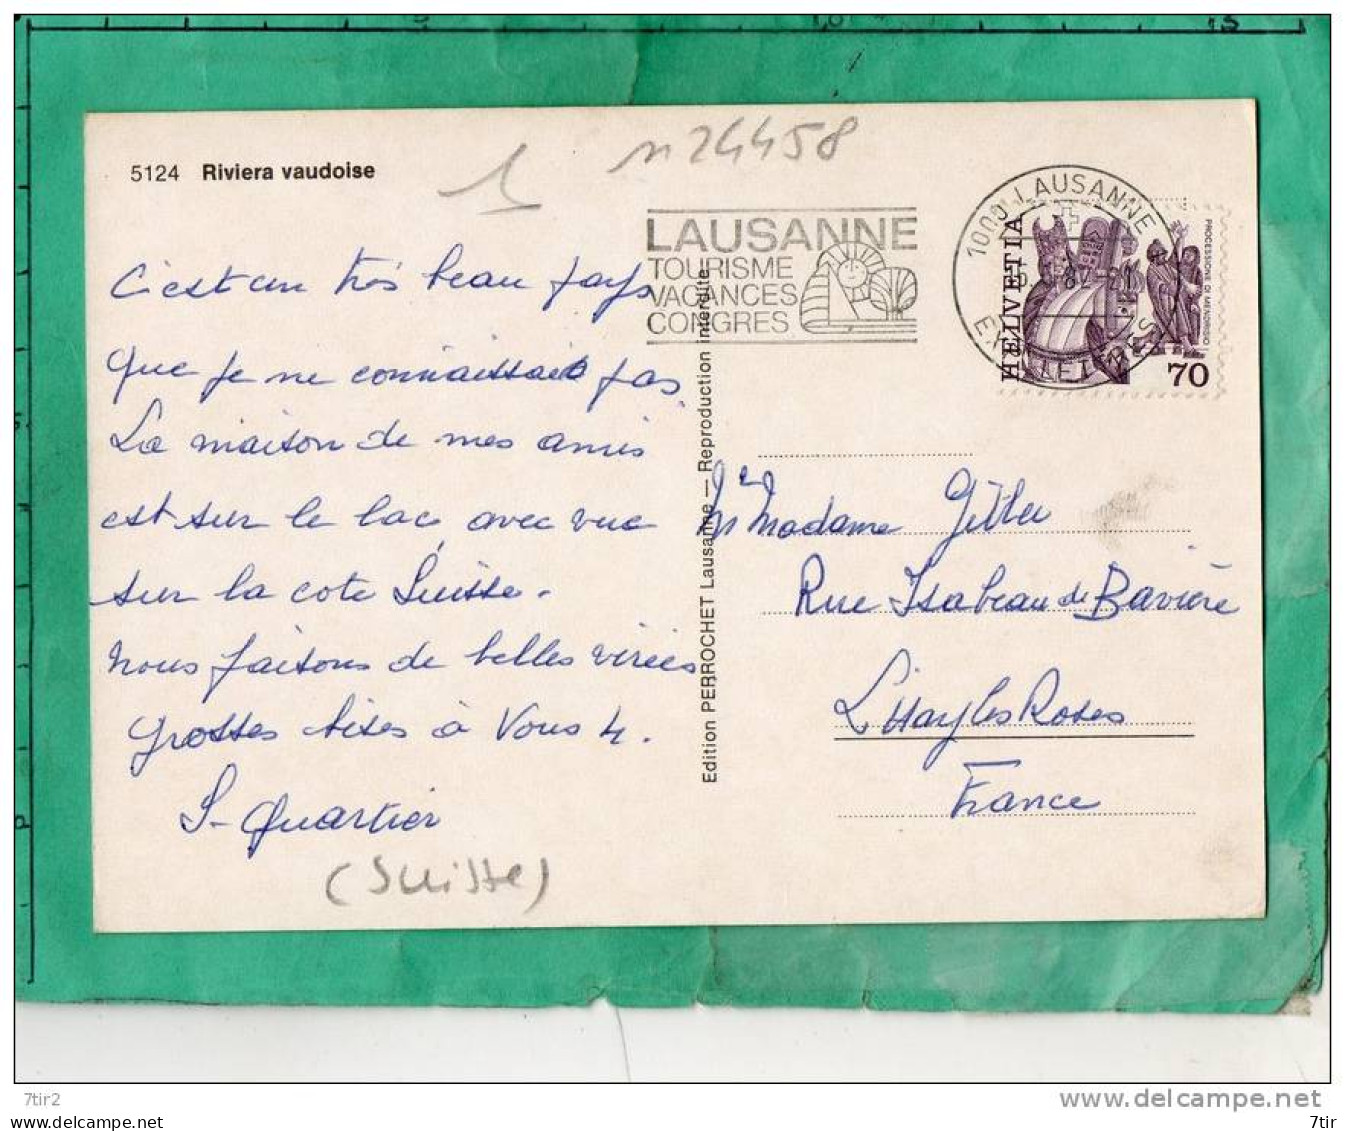 5
10
15
5124 Riviera vaudoise
1
n 24458
LAUSANNE
TOURISME
VACANCES
CONGRES
1000 LAUSANNE 1
82-21
EXP. LETTRES
HELVETIA
PROCESSIONE DI MENDRISIO
70
C'est un très beau pays
que je ne connaissais pas.
La maison de mes amis
est sur le lac, avec vue
sur la cote Suisse.
Nous faisons de belles virées
Grosses bises à Vous 4.
S. Quartier
(Suisse)
Edition PERROCHET Lausanne — Reproduction interdite
Mr Madame Gitler
Rue Isabeau de Bavière
L'Hay les Roses
France
7tir2
www.delcampe.net
www.delcampe.net
7tir